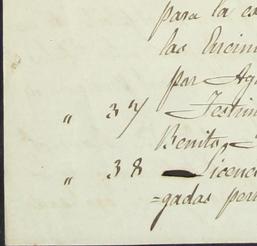 para la co
las Encin
por Ag
" 37 Testim
Benito,
" 38 Licenc
=gadas per